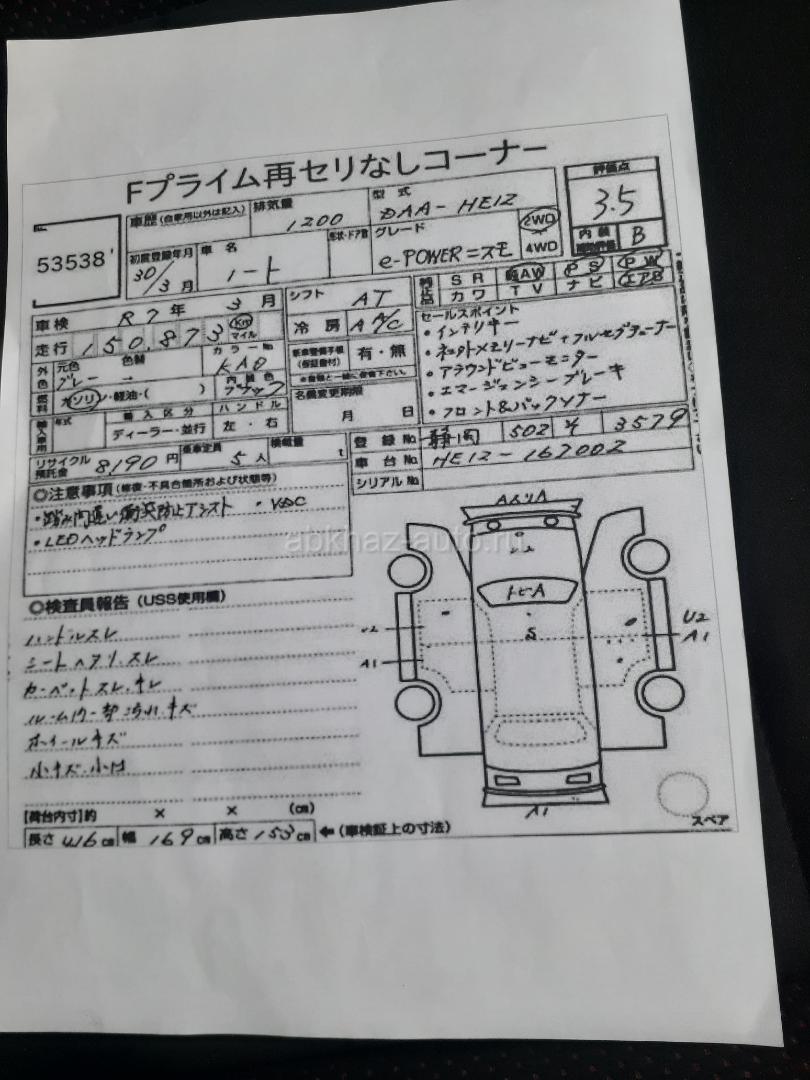 Fプライム再セリなしコーナー
53538
車歴 (自家用以外は記入)
排気量
1200
型式
DAA-HE12
評価点
3.5
初度登録年月
30/3月
車名
ノート
形状・ドア数
グレード
e-POWER=スモ
2WD
4WD
内装
B
車検
R7年 3月
シフト
AT
純正品
SR AW PS PW
カワ TV ナビ エアB
走行
150,873 Km
マイル
冷房
A A/C
セールスポイント
・インテリキー
外色
元色
グレー →
色替
カラーNo
KAD
有・無
・アラウンドビューモニター
・エマージェンシーブレーキ
燃料
ガソリン・軽油・( )
内装色
ブラック
名義変更期限
月 日
・フロント&バックソナー
輸入車用
年式
輸入区分
ディーラー・並行
ハンドル
左・右
登録No
静岡 502 3579
リサイクル預託金
8,190円
乗車定員
5人
積載量
t
車台No
HE12-167002
シリアルNo
◎注意事項 (修復・不具合箇所および状態等)
・踏み間違い衝突防止アシスト ・VDC
・LEDヘッドランプ
abkhaz-auto.ru
◎検査員報告 (USS使用欄)
ハンドルスレ
シートヘタリ、スレ
カーペットスレ、キレ
ルーム内一部汚れキズ
ホイールキズ
小キズ・小凹
トビA
S
U2
A1
U2
A1
A1
スペア
【荷台内寸】約 × × (cm)
長さ 416 cm 幅 169 cm 高さ 153 cm ←(車検証上の寸法)